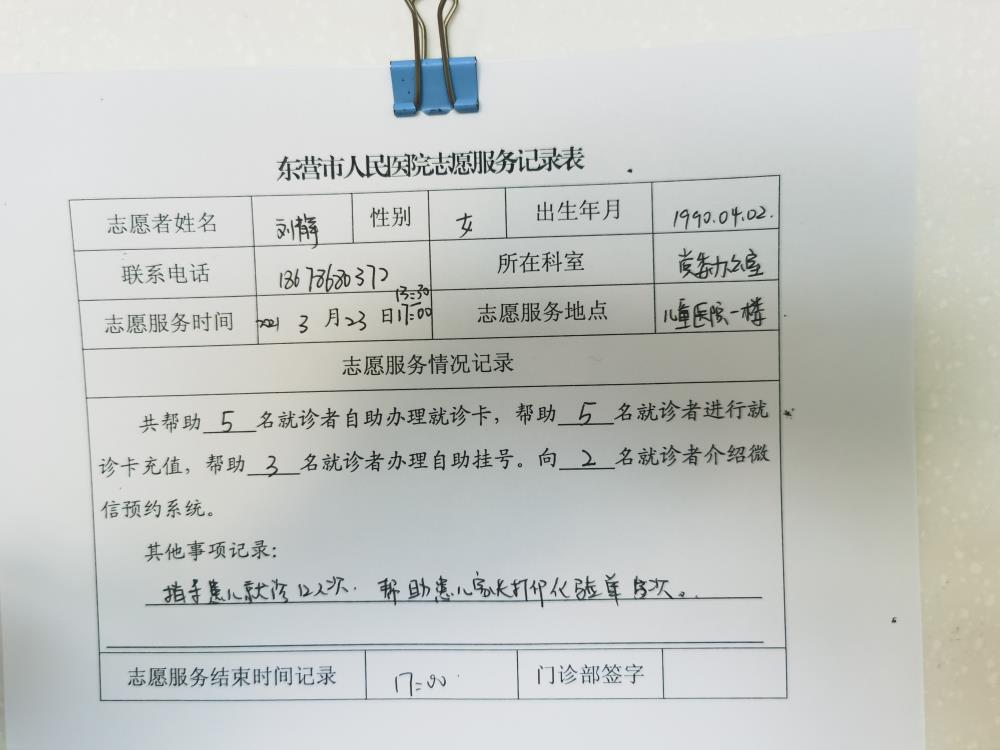 东营市人民医院志愿服务记录表
志愿者姓名 刘静 性别 女 出生年月 1990.04.02.
联系电话 18678680372 所在科室 党委办公室
志愿服务时间 2021 3 月 23 日 13:30 17:00 志愿服务地点 儿童医院一楼
志愿服务情况记录
共帮助 5 名就诊者自助办理就诊卡，帮助 5 名就诊者进行就
诊卡充值，帮助 3 名就诊者办理自助挂号。向 2 名就诊者介绍微
信预约系统。
其他事项记录：
指导患儿就诊12人次. 帮助患儿家长打印化验单 次。
志愿服务结束时间记录 17:00 门诊部签字